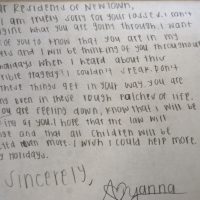 Residents of Newtown,
I am truly sorry for your losses. I can't
imagine what you are going through. I want
you to know that you are in my
and I will be thinking of you throughout
holidays when I heard about this
tragedy! I couldn't speak. Don't
these things get in your way you are
even in these rough patches of life.
you are feeling down, know that I will be
of you. I hope that the law will
and that all children will be
more. I wish I could help more.
Holidays.
Sincerely,
Aryanna